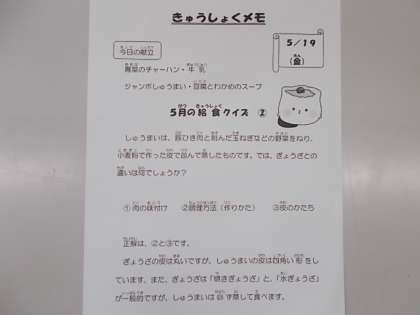 きゅうしょくメモ
5／19
（金）
今日の献立
青菜のチャーハン・牛乳
ジャンボしゅうまい・豆腐とわかめのスープ
5月の給食クイズ ②
しゅうまいは、豚ひき肉と刻んだ玉ねぎなどの野菜をねり、
小麦粉で作った皮で包んで蒸したものです。では、ぎょうざとの
違いは何でしょうか？
①肉の味付け ②調理方法（作りかた） ③皮のかたち
正解は、②と③です。
ぎょうざの皮は丸いですが、しゅうまいの皮は四角い形をし
ています。また、ぎょうざは「焼きぎょうざ」と、「水ぎょうざ」
が一般的ですが、しゅうまいは必ず蒸して食べます。